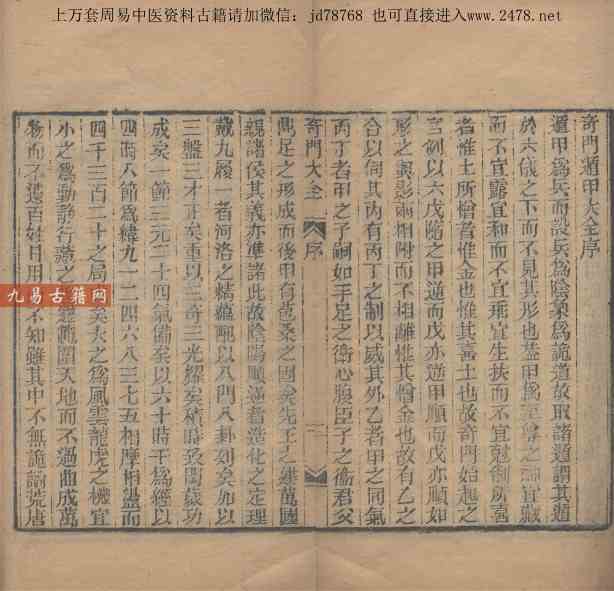 上万套周易中医资料古籍请加微信：jd78768 也可直接进入www.2478.net
奇門遁甲大全序
遁甲爲兵而設兵爲陰象爲詭道故取諸遁謂其遁
於六儀之下而不見其形也蓋甲爲至尊之神宜藏
而不宜露宜和而不宜乖宜生扶而不宜尅制所喜
者惟土所憎者惟金也惟其喜土也故奇門始起之
宮則以六戊隨之甲逆而戊亦逆甲順而戊亦順如
形之與影兩相附而不相離惟其憎金也故有乙之
合以伺其内有丙丁之制以威其外乙者甲之同氣
丙丁者甲之子嗣如手足之衛心腹臣子之衛君父
奇門大全
序
一
鼎足之形成而後甲有苞桑之固矣先王之建萬國
親諸侯其義亦準諸此故陰陽順逆者造化之定理
戴九履一者河洛之精蘊配以八門八卦列矣加以
三盤三才正矣重以三奇三光耀矣積時致閏歲功
成矣一節三元二十四氣備矣以六十時干爲經以
四時八節爲緯九一二四六八三七五相摩相盪而
四千三百二十之局 矣大之爲風雲龍虎之機宜
小之爲動靜行藏之 範圍天地而不過曲成萬
物而不遺百姓日用 不知雖其中不無詭譎荒唐
九易古籍网